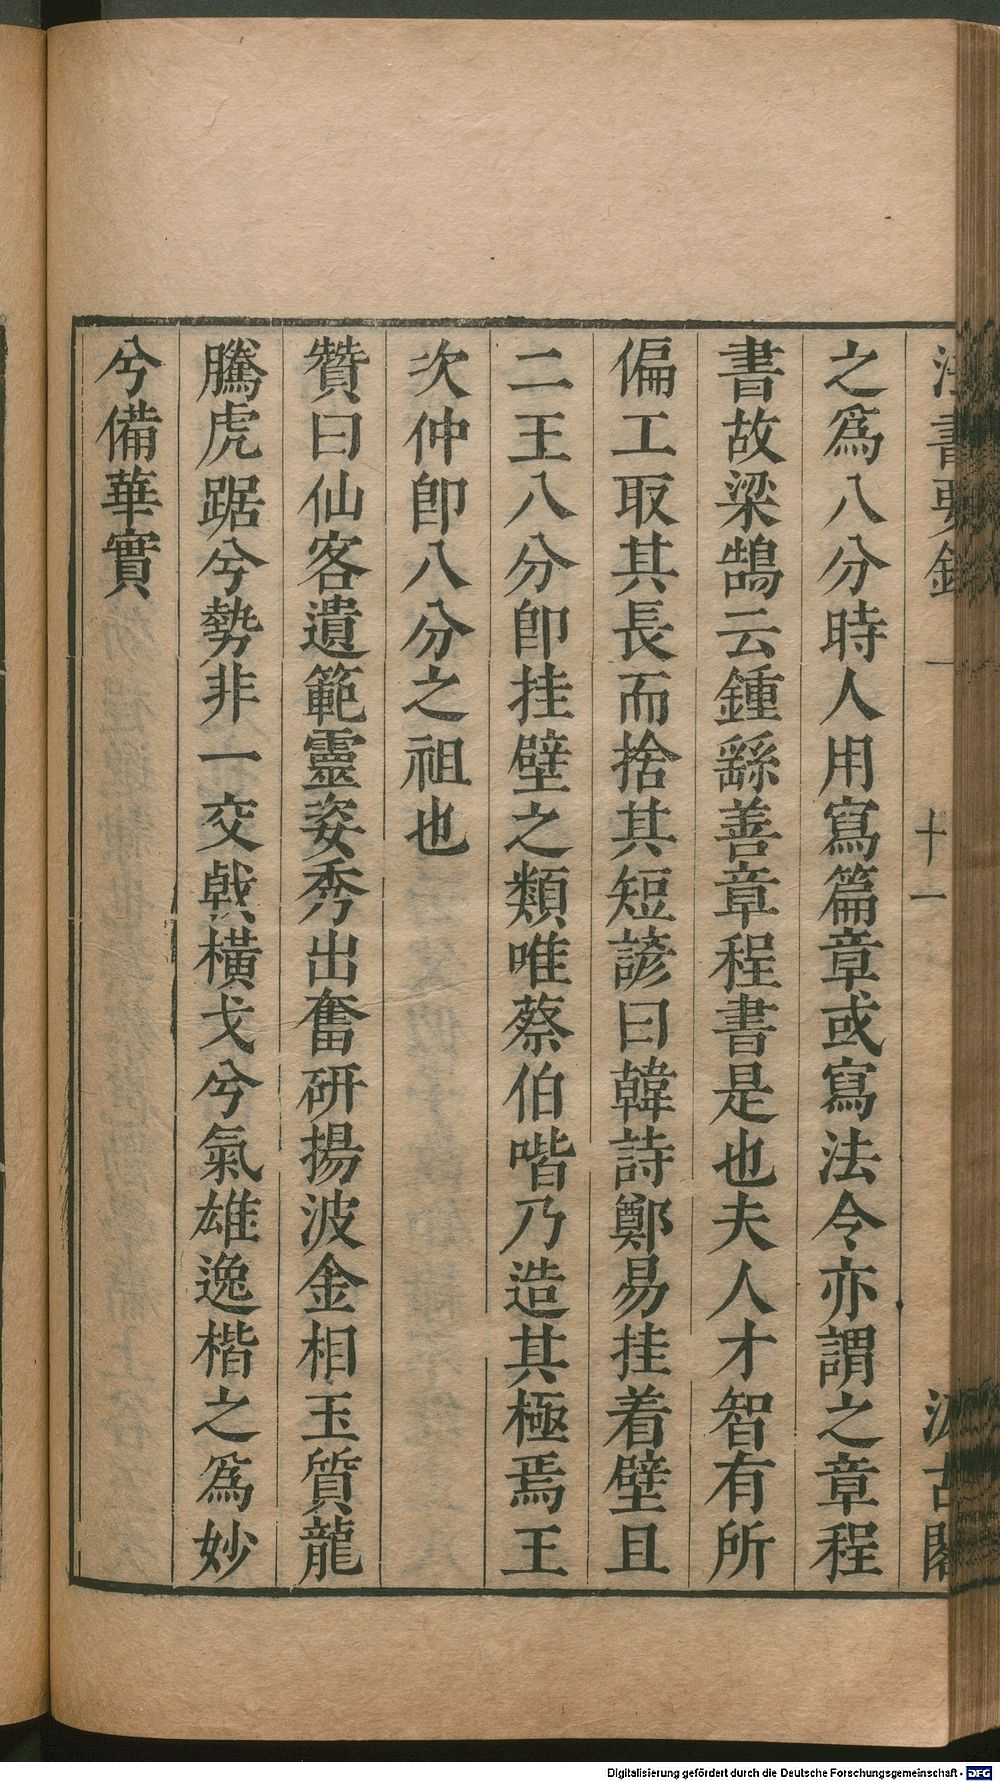 法書要錄 一 十一 汲古閣
之爲八分時人用寫篇章或寫法令亦謂之章程
書故梁鵠云鍾繇善章程書是也夫人才智有所
偏工取其長而捨其短諺曰韓詩鄭易挂着壁且
二王八分卽挂壁之類唯蔡伯喈乃造其極焉王
次仲卽八分之祖也
贊曰仙客遺範靈姿秀出奮研揚波金相玉質龍
騰虎踞兮勢非一交戟橫戈兮氣雄逸楷之爲妙
兮備華實
Digitalisierung gefördert durch die Deutsche Forschungsgemeinschaft - DFG